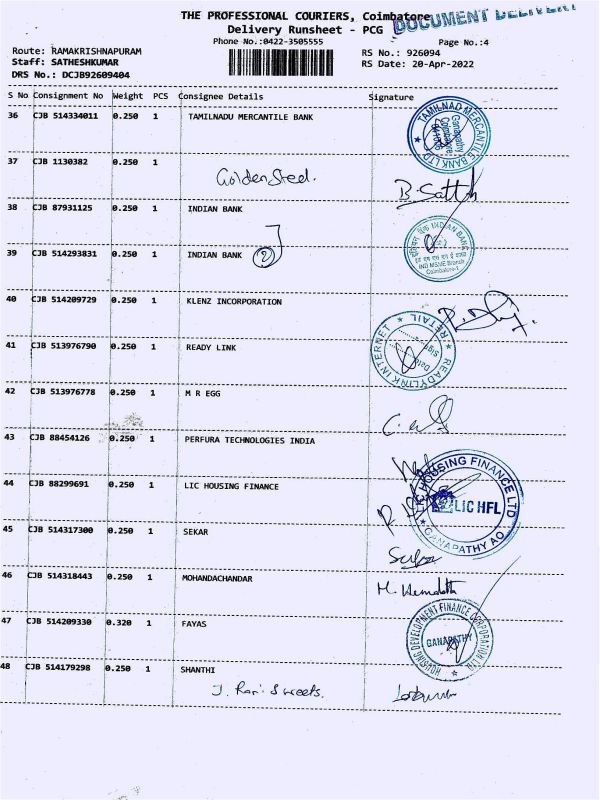 THE PROFESSIONAL COURIERS, Coimbatore
DOCUMENT DELIVERY
Delivery Runsheet - PCG
Phone No.:0422-3505555
Page No.:4
Route: RAMAKRISHNAPURAM
RS No.: 926094
Staff: SATHESHKUMAR
RS Date: 20-Apr-2022
DRS No.: DCJB92609404
S No Consignment No Weight PCS Consignee Details Signature
36 CJB 514334011 0.250 1 TAMILNADU MERCANTILE BANK
TAMILNAD MERCANTILE BANK LTD
Ganapathy
Coimbatore
37 CJB 1130382 0.250 1
Golden Steel.
B. Sattish
38 CJB 87931125 0.250 1 INDIAN BANK
39 CJB 514293831 0.250 1 INDIAN BANK 2
INDIAN BANK
IND MSME Branch
Coimbatore-1
40 CJB 514209729 0.250 1 KLENZ INCORPORATION
41 CJB 513976790 0.250 1 READY LINK
READYLINK INTERNET RETAIL
Date
Sign
42 CJB 513976778 0.250 1 M R EGG
43 CJB 88454126 0.250 1 PERFURA TECHNOLOGIES INDIA
44 CJB 88299691 0.250 1 LIC HOUSING FINANCE
LIC HOUSING FINANCE LTD
LIC HFL
GANAPATHY AO
45 CJB 514317300 0.250 1 SEKAR
46 CJB 514318443 0.250 1 MOHANDACHANDAR
47 CJB 514209330 0.320 1 FAYAS
HOUSING DEVELOPMENT FINANCE CORPORATION LTD
GANAPATHY
48 CJB 514179298 0.250 1 SHANTHI